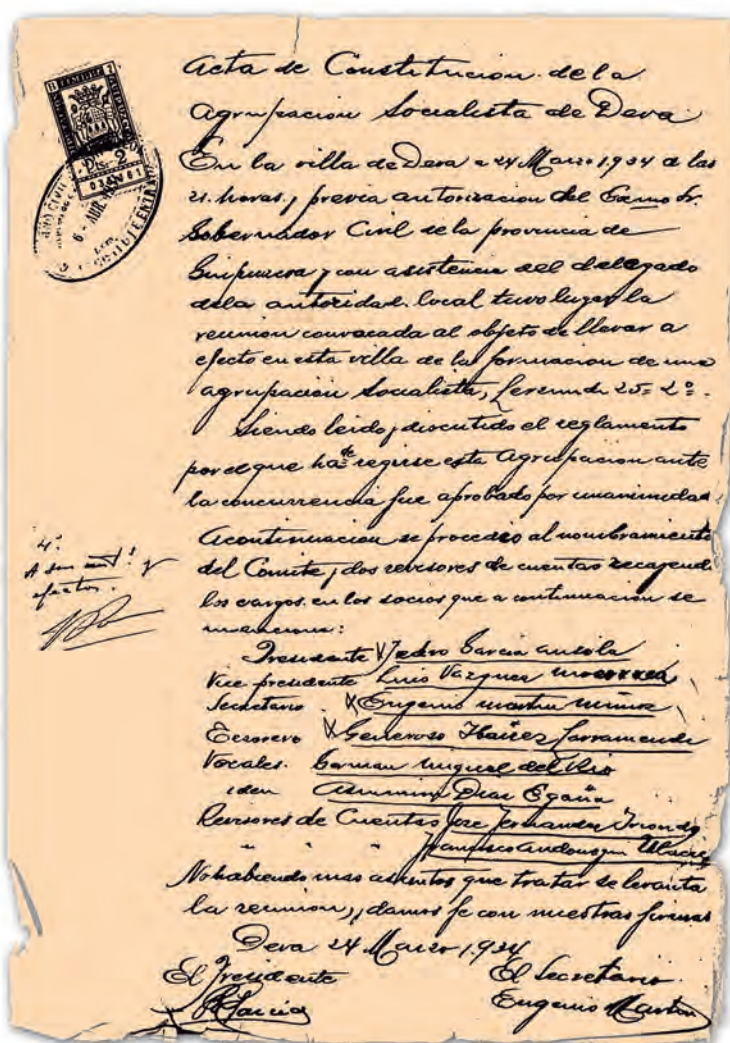 Acta de Constitucion de la
Agrupacion Socialista de Deva
En la villa de Deva a 24 Marzo 1.934 a las
21. horas, previa autorizacion del Exmo Sr.
Gobernador Civil de la provincia de
Guipuzcoa y con asistencia del delegado
dela autoridad local tuvo lugar la
reunion convocada al objeto de llevar a
efecto en esta villa de la formacion de una
agrupacion Socialista, 25= 2º.
Siendo leido y discutido el reglamento
por el que ha de regirse esta Agrupacion ante
la concurrencia fue aprobado por unanimidad
Acontinuacion se procedio al nombramiento
del Comite y dos revisores de cuentas recayendo
los cargos en los socios que a continuacion se
mencionan:
Presidente Pedro Garcia
Vice presidente Luis Vazquez
Secretario X Eugenio Martin Muñoz
Tesorero X Generoso Ibañez Larramendi
Vocales. German Miguel del Rio
iden Diaz Egaña
Revisores de Cuentas Jose Fernandez Iriondo
" " " Francisco
No habiendo mas asuntos que tratar se levanta
la reunion, y damos fe con nuestras firmas
Deva 24 Marzo 1.934
El Presidente El Secretario
P. Garcia Eugenio Martin
4º.
A sus y
efectos.